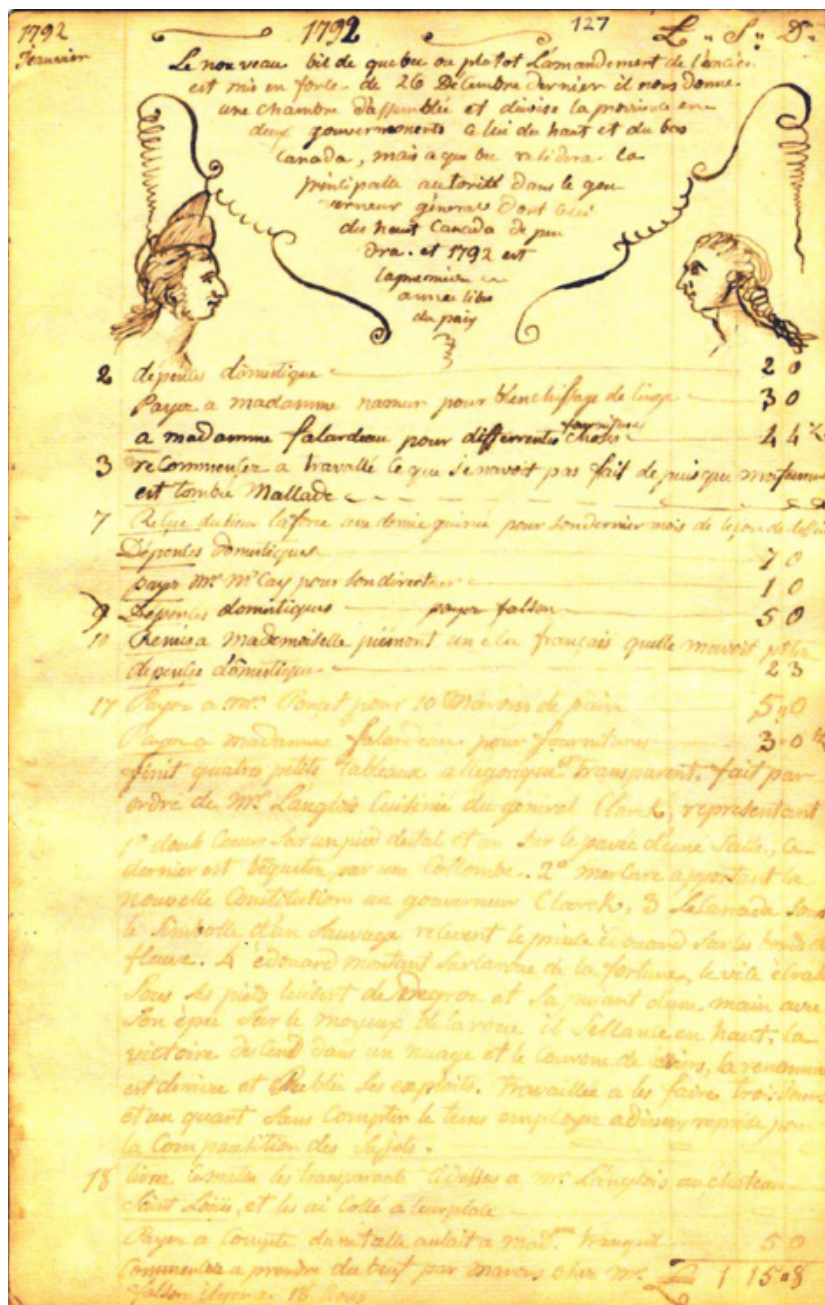 1792 1792 127 £ " S " D "
Jeanvier
Le nouveau bil de quebec ou plutot L'amandement de l'ancien
est mis en force de 26 Décembre dernier il nous donne
une chambre d'assemblée et divise la province en
deux gouvernements celui du haut et du bas
Canada, mais a quebec residera la
principalle autorité dans le gou
verneur général dont celui
du haut Canada depen
dra. et 1792 est
la premiere
année libre
du païs
2 dépenses domestique 2 0
Payez a madamme namur pour blenchissage de linge 3 0
a madamme falardeau pour differrentes fournitures choses 4 4 ½
3 recommencez a travallé ce que je navoit pas fait depuisque ma femme
est tombé Mallade
7 Reçue du sieur laforce une demie guinée pour son dernier mois de leçon de dessin
Dépenses domestiques 7 0
payer Mr. McCay pour son directeur 1 0
9 Dépenses domestiques payer falson 5 0
10 Remis a mademoiselle piémont un ecu français quelle mavoit
depenses domestique 2 3
17 Payez a mr. Ponçet pour 10 de pain 5 " 0
Payez a madamme falardeau pour fournitures 3 " 0 ½
finit quatres petits tableaux allegorique et transparent, fait par
ordre de Mr. Langlois Cuisinié du general Clarck, representant
1° double Coeurs sur un pied destal et un sur le pavée d'une Salle, ce
dernier est béquetée par une Collombe. 2° mercure apportant la
nouvelle Constitution au gouverneur Clarck, 3 Le Canada sous
le Simbolle d'un Sauvage relevent le prince édouard sur les bords du
fleuve. 4° édouard montant sur la roue de la fortune, le vice écrasé
sous ses pieds de et sapuiant d'une main avec
son épée sur le moyeux de la roue il sellance en haut. la
victoire descend dans un nuage et le Couronne de loriers, la renommée
est derriere et Publie ses exploits. travaillée a les faire trois jours
et un quart sans Compter le tems employez a diverse reprise pour
la Composition des Sujets.
18 livrez les transparents cidessus a mr. Langlois au chateau
Saint Loüis, et les ai collé a leur place
Payez a Compte du a madme. tranquil 5 0
Commencez a prendre du beuf par marcus chez mr. £ 1 15 " 8
falson